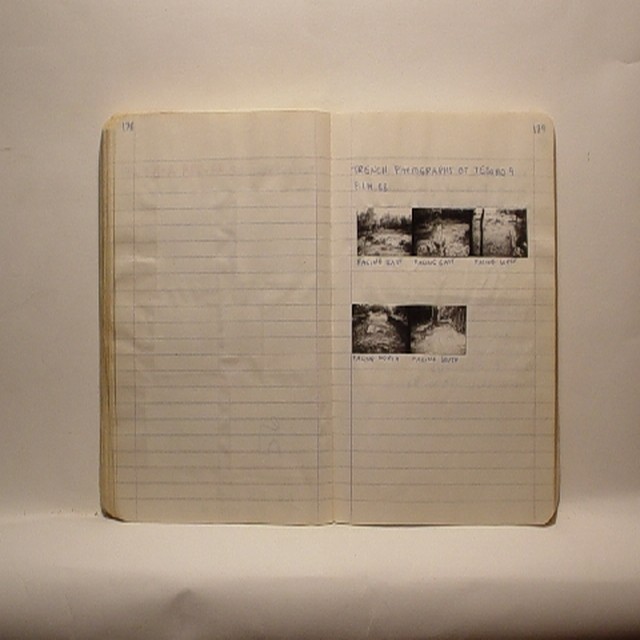 TRENCH PHOTOGRAPHS OF TESORO 9
FACING EAST FACING EAST FACING WEST
FACING NORTH FACING SOUTH